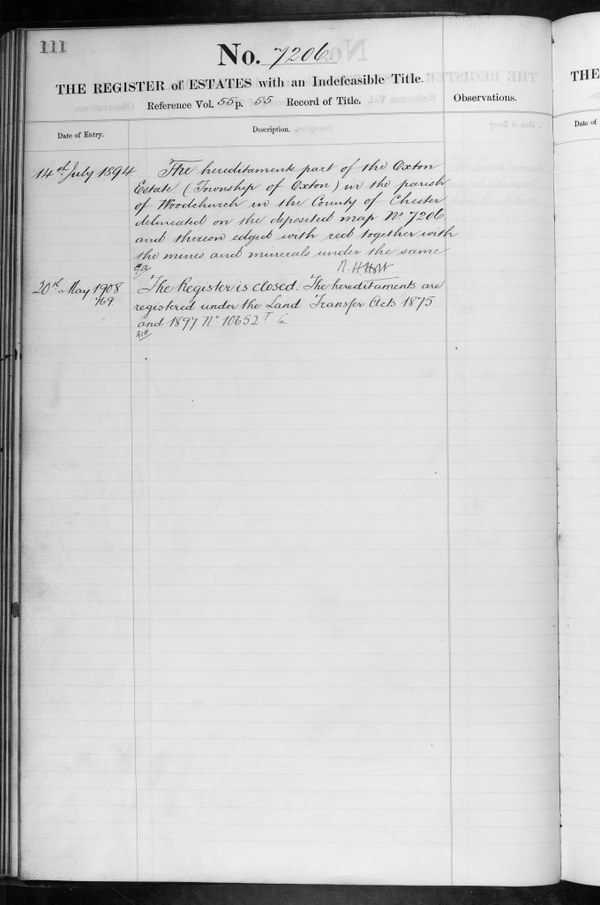 111
No. 7206
THE REGISTER of ESTATES with an Indefeasible Title.
Reference Vol. 55 p. 55 Record of Title.
Observations.
Date of Entry.
Description.
14th July 1894
The hereditament part of the Oxton
Estate (Township of Oxton) in the parish
of Woodchurch in the County of Chester
delineated on the deposited map No 7206
and thereon edged with red together with
the mines and minerals under the same
R. H. Holt
20th May 1908
769
The Register is closed. The hereditaments are
registered under the Land Transfer Acts 1875
and 1897 No 10652
THE
Date of